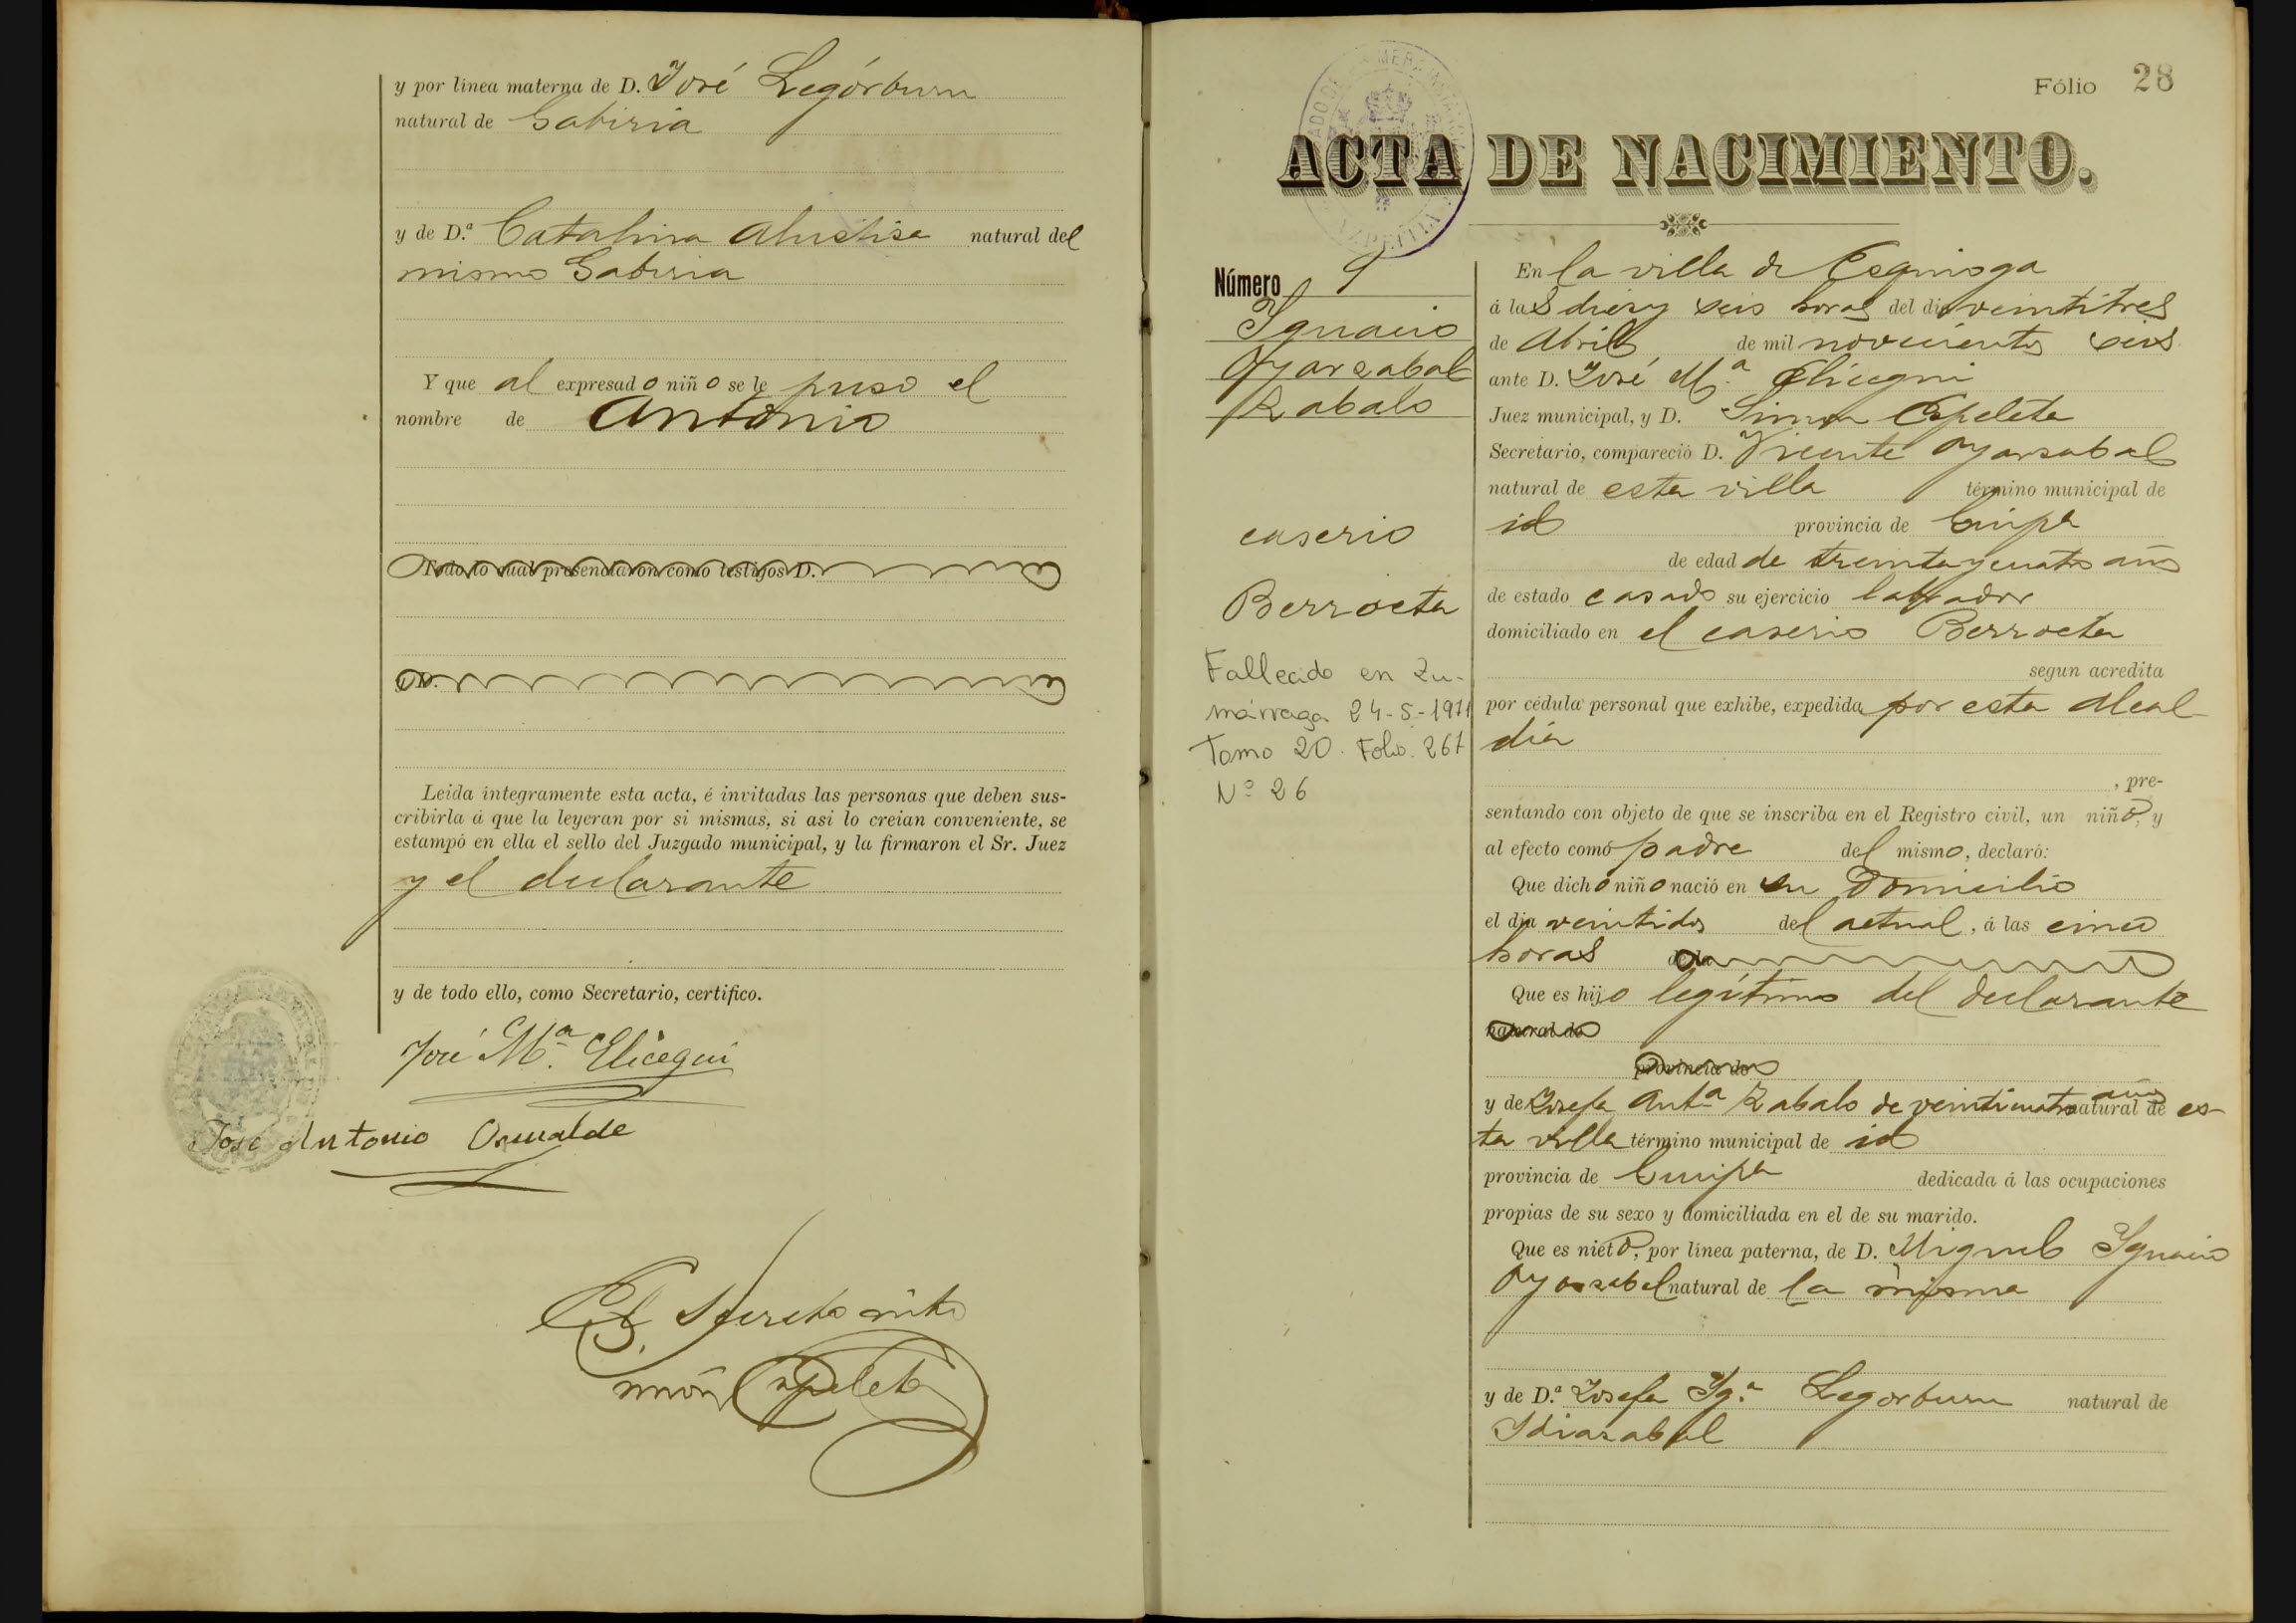 y por línea materna de D. José Legórburu
natural de Gabiria
y de D.ª Catalina Alustisa natural del
mismo Gabiria
Y que al expresado niño se le puso el
nombre de Antonio
Todo lo cual presenciaron como testigos D.
y D.
Leida íntegramente esta acta, é invitadas las personas que deben sus-
cribirla á que la leyeran por si mismas, si asi lo creian conveniente, se
estampó en ella el sello del Juzgado municipal, y la firmaron el Sr. Juez
y el declarante
y de todo ello, como Secretario, certifico.
José M.ª Elicegui
José Antonio
El Secretario
Simón Espeleta
Fólio 28
ACTA DE NACIMIENTO.
Número 9
Ignacio
Oyarzabal
Zabalo
caserio
Berroeta
Fallecido en Zu-
márraga 24-5-1971
Tomo 20. Folio. 261
Nº 26
En la villa de Ezquioga
á las diez y seis horas del dia veintitres
de Abril de mil novecientos seis
ante D. José M.ª Elicegui
Juez municipal, y D. Simon Espeleta
Secretario, compareció D. Vicente Oyarzabal
natural de esta villa término municipal de
id provincia de Guipª
de edad de treinta y cuatro años
de estado casado su ejercicio labrador
domiciliado en el caserio Berroeta
segun acredita
por cédula personal que exhibe, expedida por esta Alcal-
dia
, pre-
sentando con objeto de que se inscriba en el Registro civil, un niño, y
al efecto como padre del mismo, declaró:
Que dicho niño nació en su domicilio
el dia veintidos del actual, á las cinco
horas de la
Que es hijo legítimo del declarante
natural de
provincia de
y de Josefa Antª Zabalo de veinticuatro años natural de es-
ta villa término municipal de id
provincia de Guipª dedicada á las ocupaciones
propias de su sexo y domiciliada en el de su marido.
Que es nieto, por línea paterna, de D. Miguel Ignacio
Oyarzabal natural de la misma
y de D.ª Josefa Ig.ª Legorburu natural de
Idiazabal